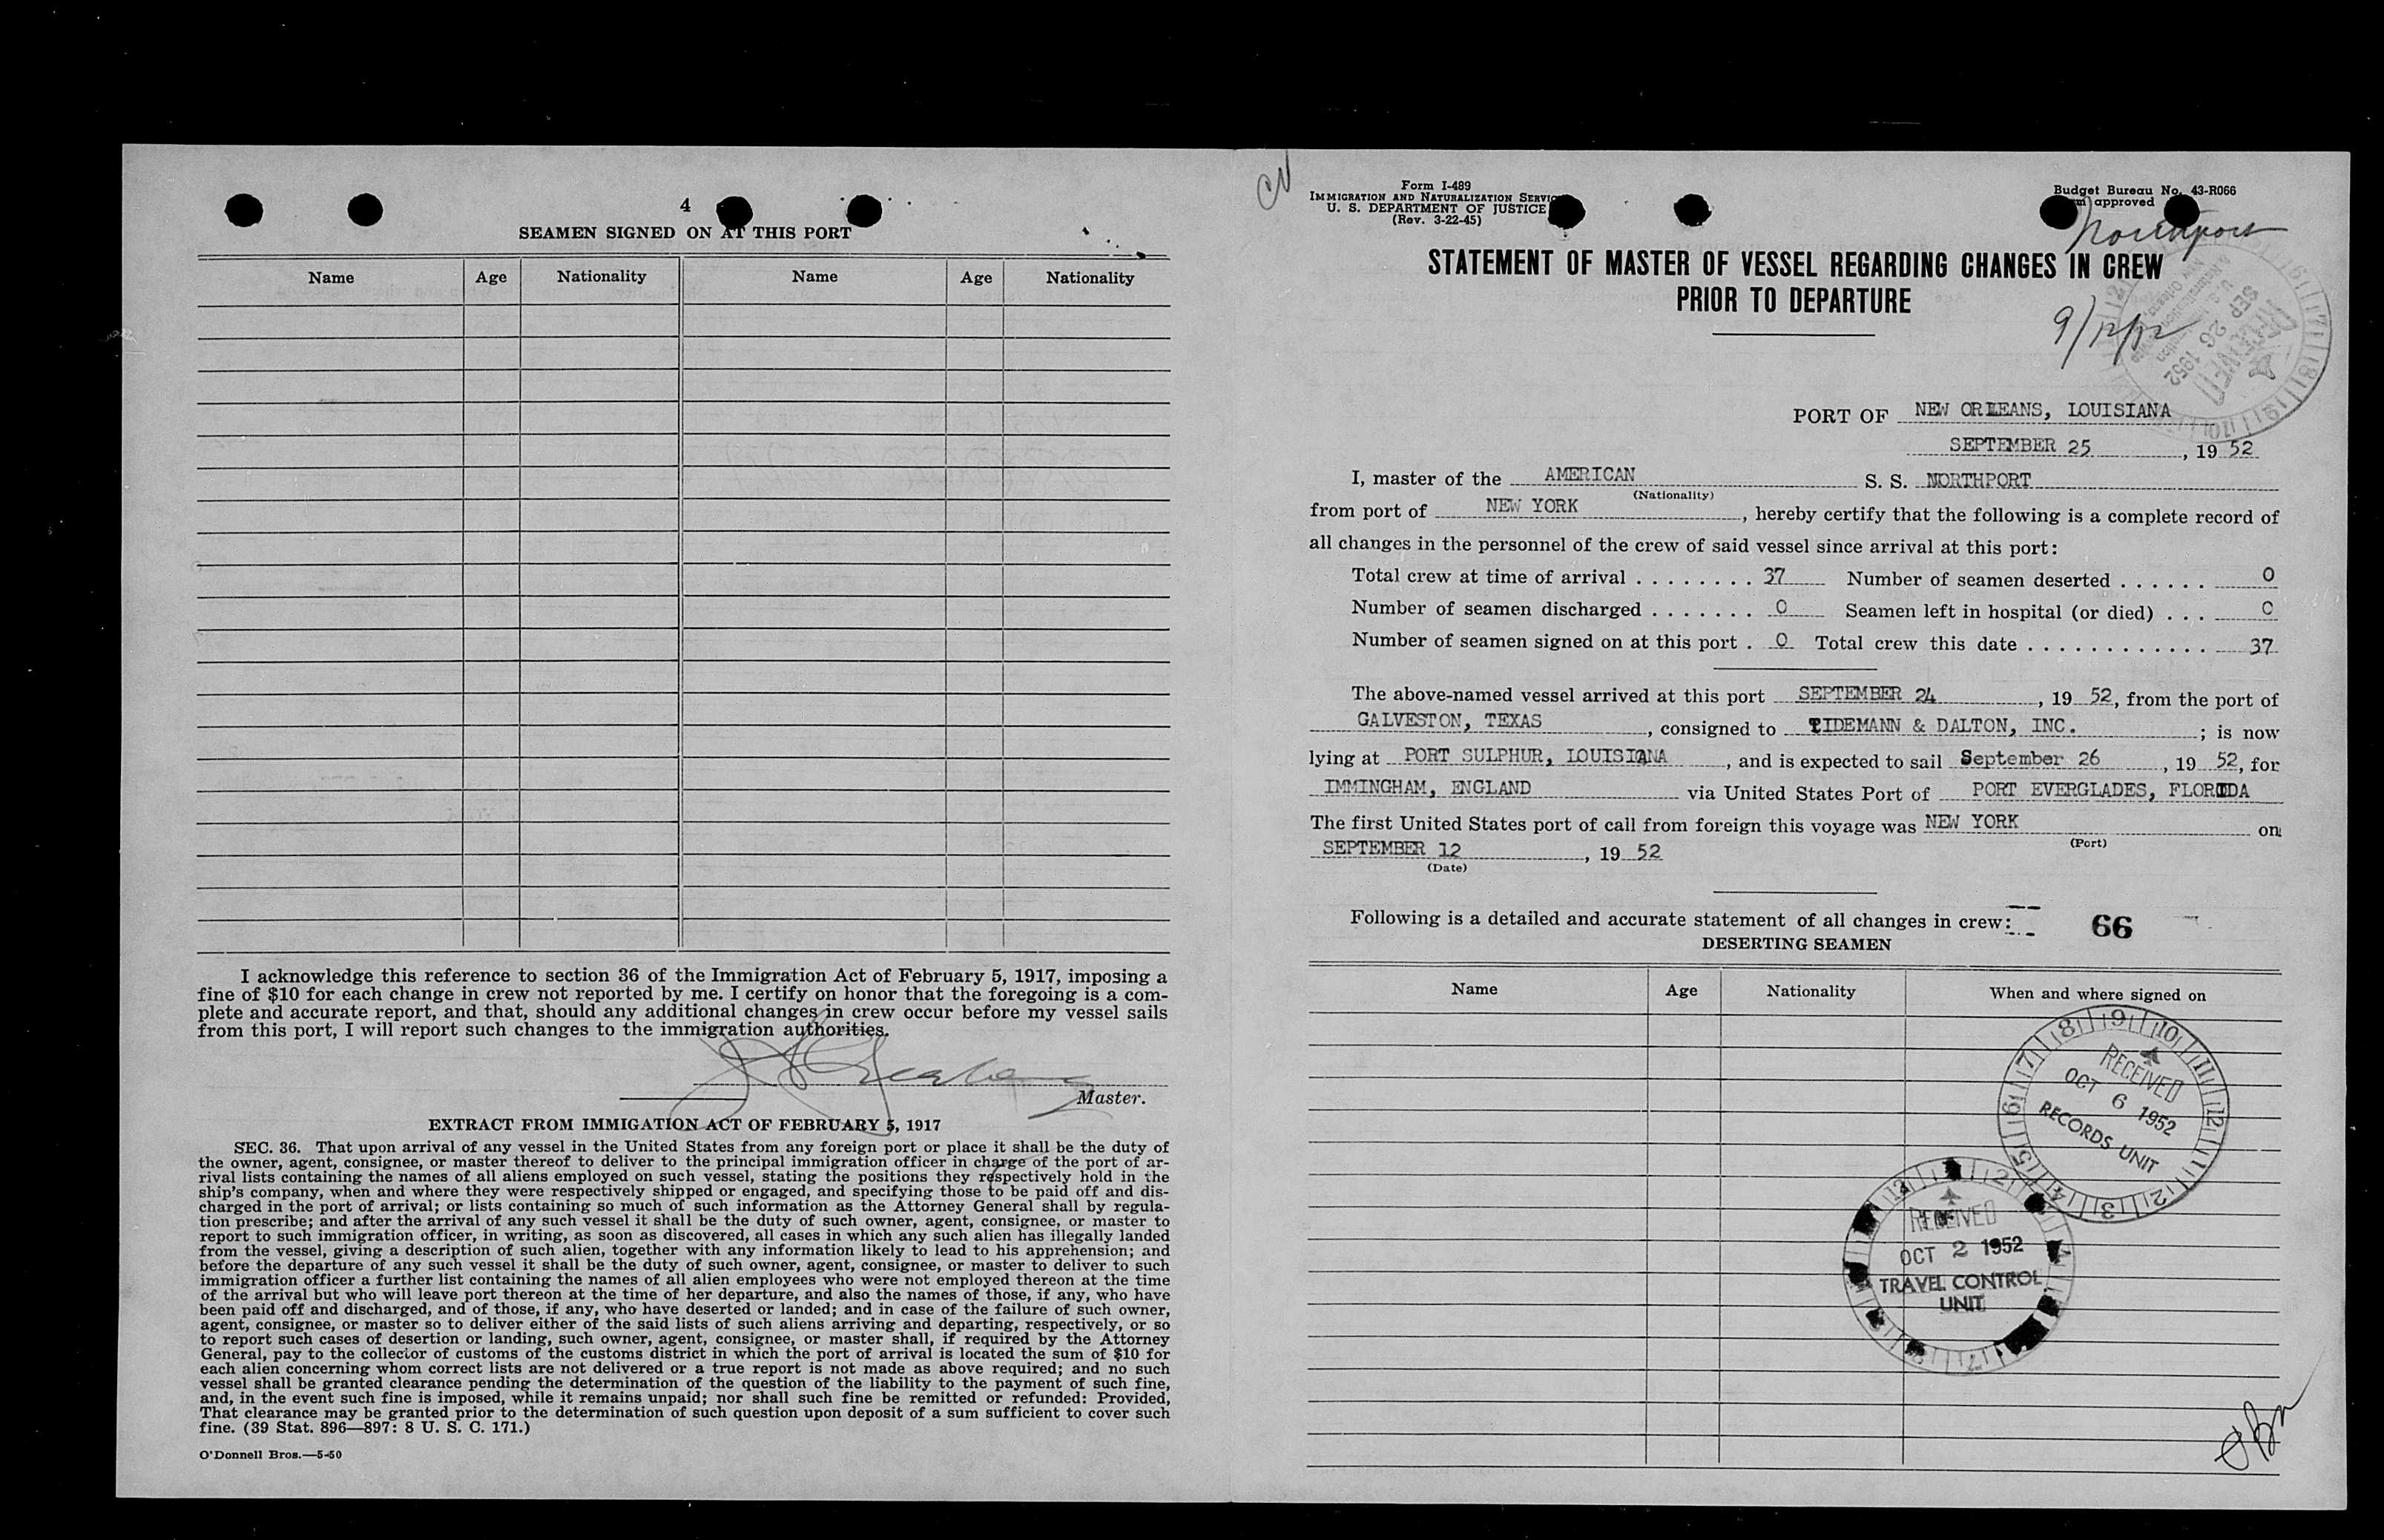 4
SEAMEN SIGNED ON AT THIS PORT
Name Age Nationality Name Age Nationality
I acknowledge this reference to section 36 of the Immigration Act of February 5, 1917, imposing a
fine of $10 for each change in crew not reported by me. I certify on honor that the foregoing is a com-
plete and accurate report, and that, should any additional changes in crew occur before my vessel sails
from this port, I will report such changes to the immigration authorities.
Master.
EXTRACT FROM IMMIGATION ACT OF FEBRUARY 5, 1917
SEC. 36. That upon arrival of any vessel in the United States from any foreign port or place it shall be the duty of
the owner, agent, consignee, or master thereof to deliver to the principal immigration officer in charge of the port of ar-
rival lists containing the names of all aliens employed on such vessel, stating the positions they respectively hold in the
ship's company, when and where they were respectively shipped or engaged, and specifying those to be paid off and dis-
charged in the port of arrival; or lists containing so much of such information as the Attorney General shall by regula-
tion prescribe; and after the arrival of any such vessel it shall be the duty of such owner, agent, consignee, or master to
report to such immigration officer, in writing, as soon as discovered, all cases in which any such alien has illegally landed
from the vessel, giving a description of such alien, together with any information likely to lead to his apprehension; and
before the departure of any such vessel it shall be the duty of such owner, agent, consignee, or master to deliver to such
immigration officer a further list containing the names of all alien employees who were not employed thereon at the time
of the arrival but who will leave port thereon at the time of her departure, and also the names of those, if any, who have
been paid off and discharged, and of those, if any, who have deserted or landed; and in case of the failure of such owner,
agent, consignee, or master so to deliver either of the said lists of such aliens arriving and departing, respectively, or so
to report such cases of desertion or landing, such owner, agent, consignee, or master shall, if required by the Attorney
General, pay to the collector of customs of the customs district in which the port of arrival is located the sum of $10 for
each alien concerning whom correct lists are not delivered or a true report is not made as above required; and no such
vessel shall be granted clearance pending the determination of the question of the liability to the payment of such fine,
and, in the event such fine is imposed, while it remains unpaid; nor shall such fine be remitted or refunded: Provided,
That clearance may be granted prior to the determination of such question upon deposit of a sum sufficient to cover such
fine. (39 Stat. 896—897: 8 U. S. C. 171.)
O'Donnell Bros.—5-50
Form I-489
IMMIGRATION AND NATURALIZATION SERVICE
U. S. DEPARTMENT OF JUSTICE
(Rev. 3-22-45)
Budget Bureau No. 43-R066
approved
Northport
STATEMENT OF MASTER OF VESSEL REGARDING CHANGES IN CREW
PRIOR TO DEPARTURE
9/12/52
RECEIVED
SEP 26 1952
PORT OF NEW ORLEANS, LOUISIANA
SEPTEMBER 25, 19 52
I, master of the AMERICAN S. S. NORTHPORT
(Nationality)
from port of NEW YORK, hereby certify that the following is a complete record of
all changes in the personnel of the crew of said vessel since arrival at this port:
Total crew at time of arrival ........ 37 Number of seamen deserted ...... 0
Number of seamen discharged ....... 0 Seamen left in hospital (or died) ... 0
Number of seamen signed on at this port . 0 Total crew this date ............ 37
The above-named vessel arrived at this port SEPTEMBER 24, 19 52, from the port of
GALVESTON, TEXAS, consigned to TIDEMANN & DALTON, INC. ; is now
lying at PORT SULPHUR, LOUISIANA, and is expected to sail September 26, 19 52, for
IMMINGHAM, ENGLAND via United States Port of PORT EVERGLADES, FLORIDA
The first United States port of call from foreign this voyage was NEW YORK on
(Port)
SEPTEMBER 12, 19 52
(Date)
Following is a detailed and accurate statement of all changes in crew: 66
DESERTING SEAMEN
Name Age Nationality When and where signed on
RECEIVED
OCT 6 1952
RECORDS UNIT
RECEIVED
OCT 2 1952
TRAVEL CONTROL
UNIT